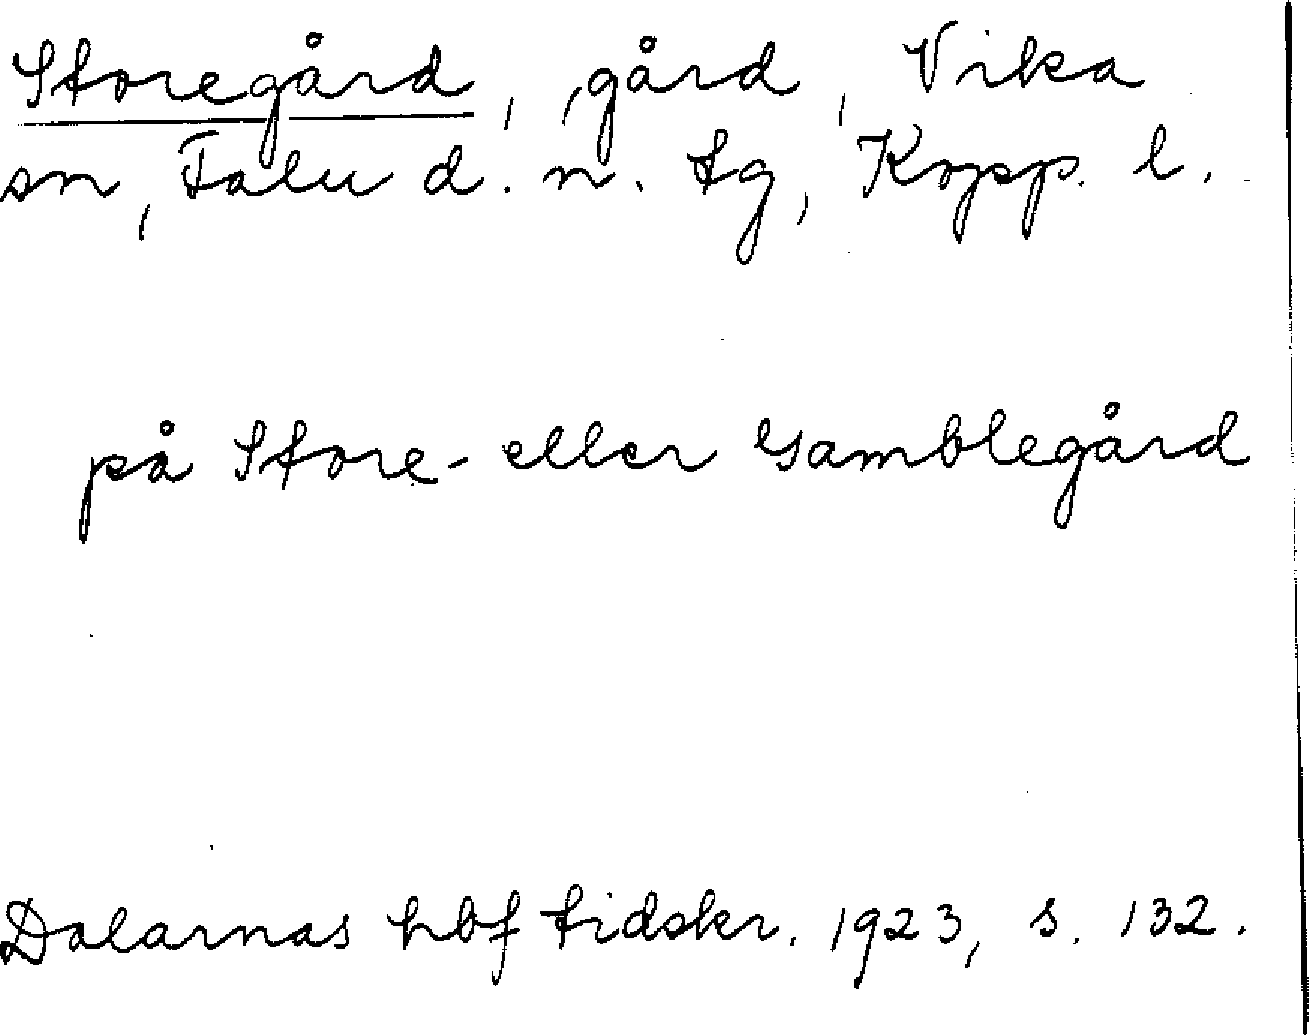 Storegård, gård, Vika
sn, Falu d. n. tg, Kopp. l.
på Store- eller Gamblegård
Dalarnas hbf tidskr. 1923, s. 132.